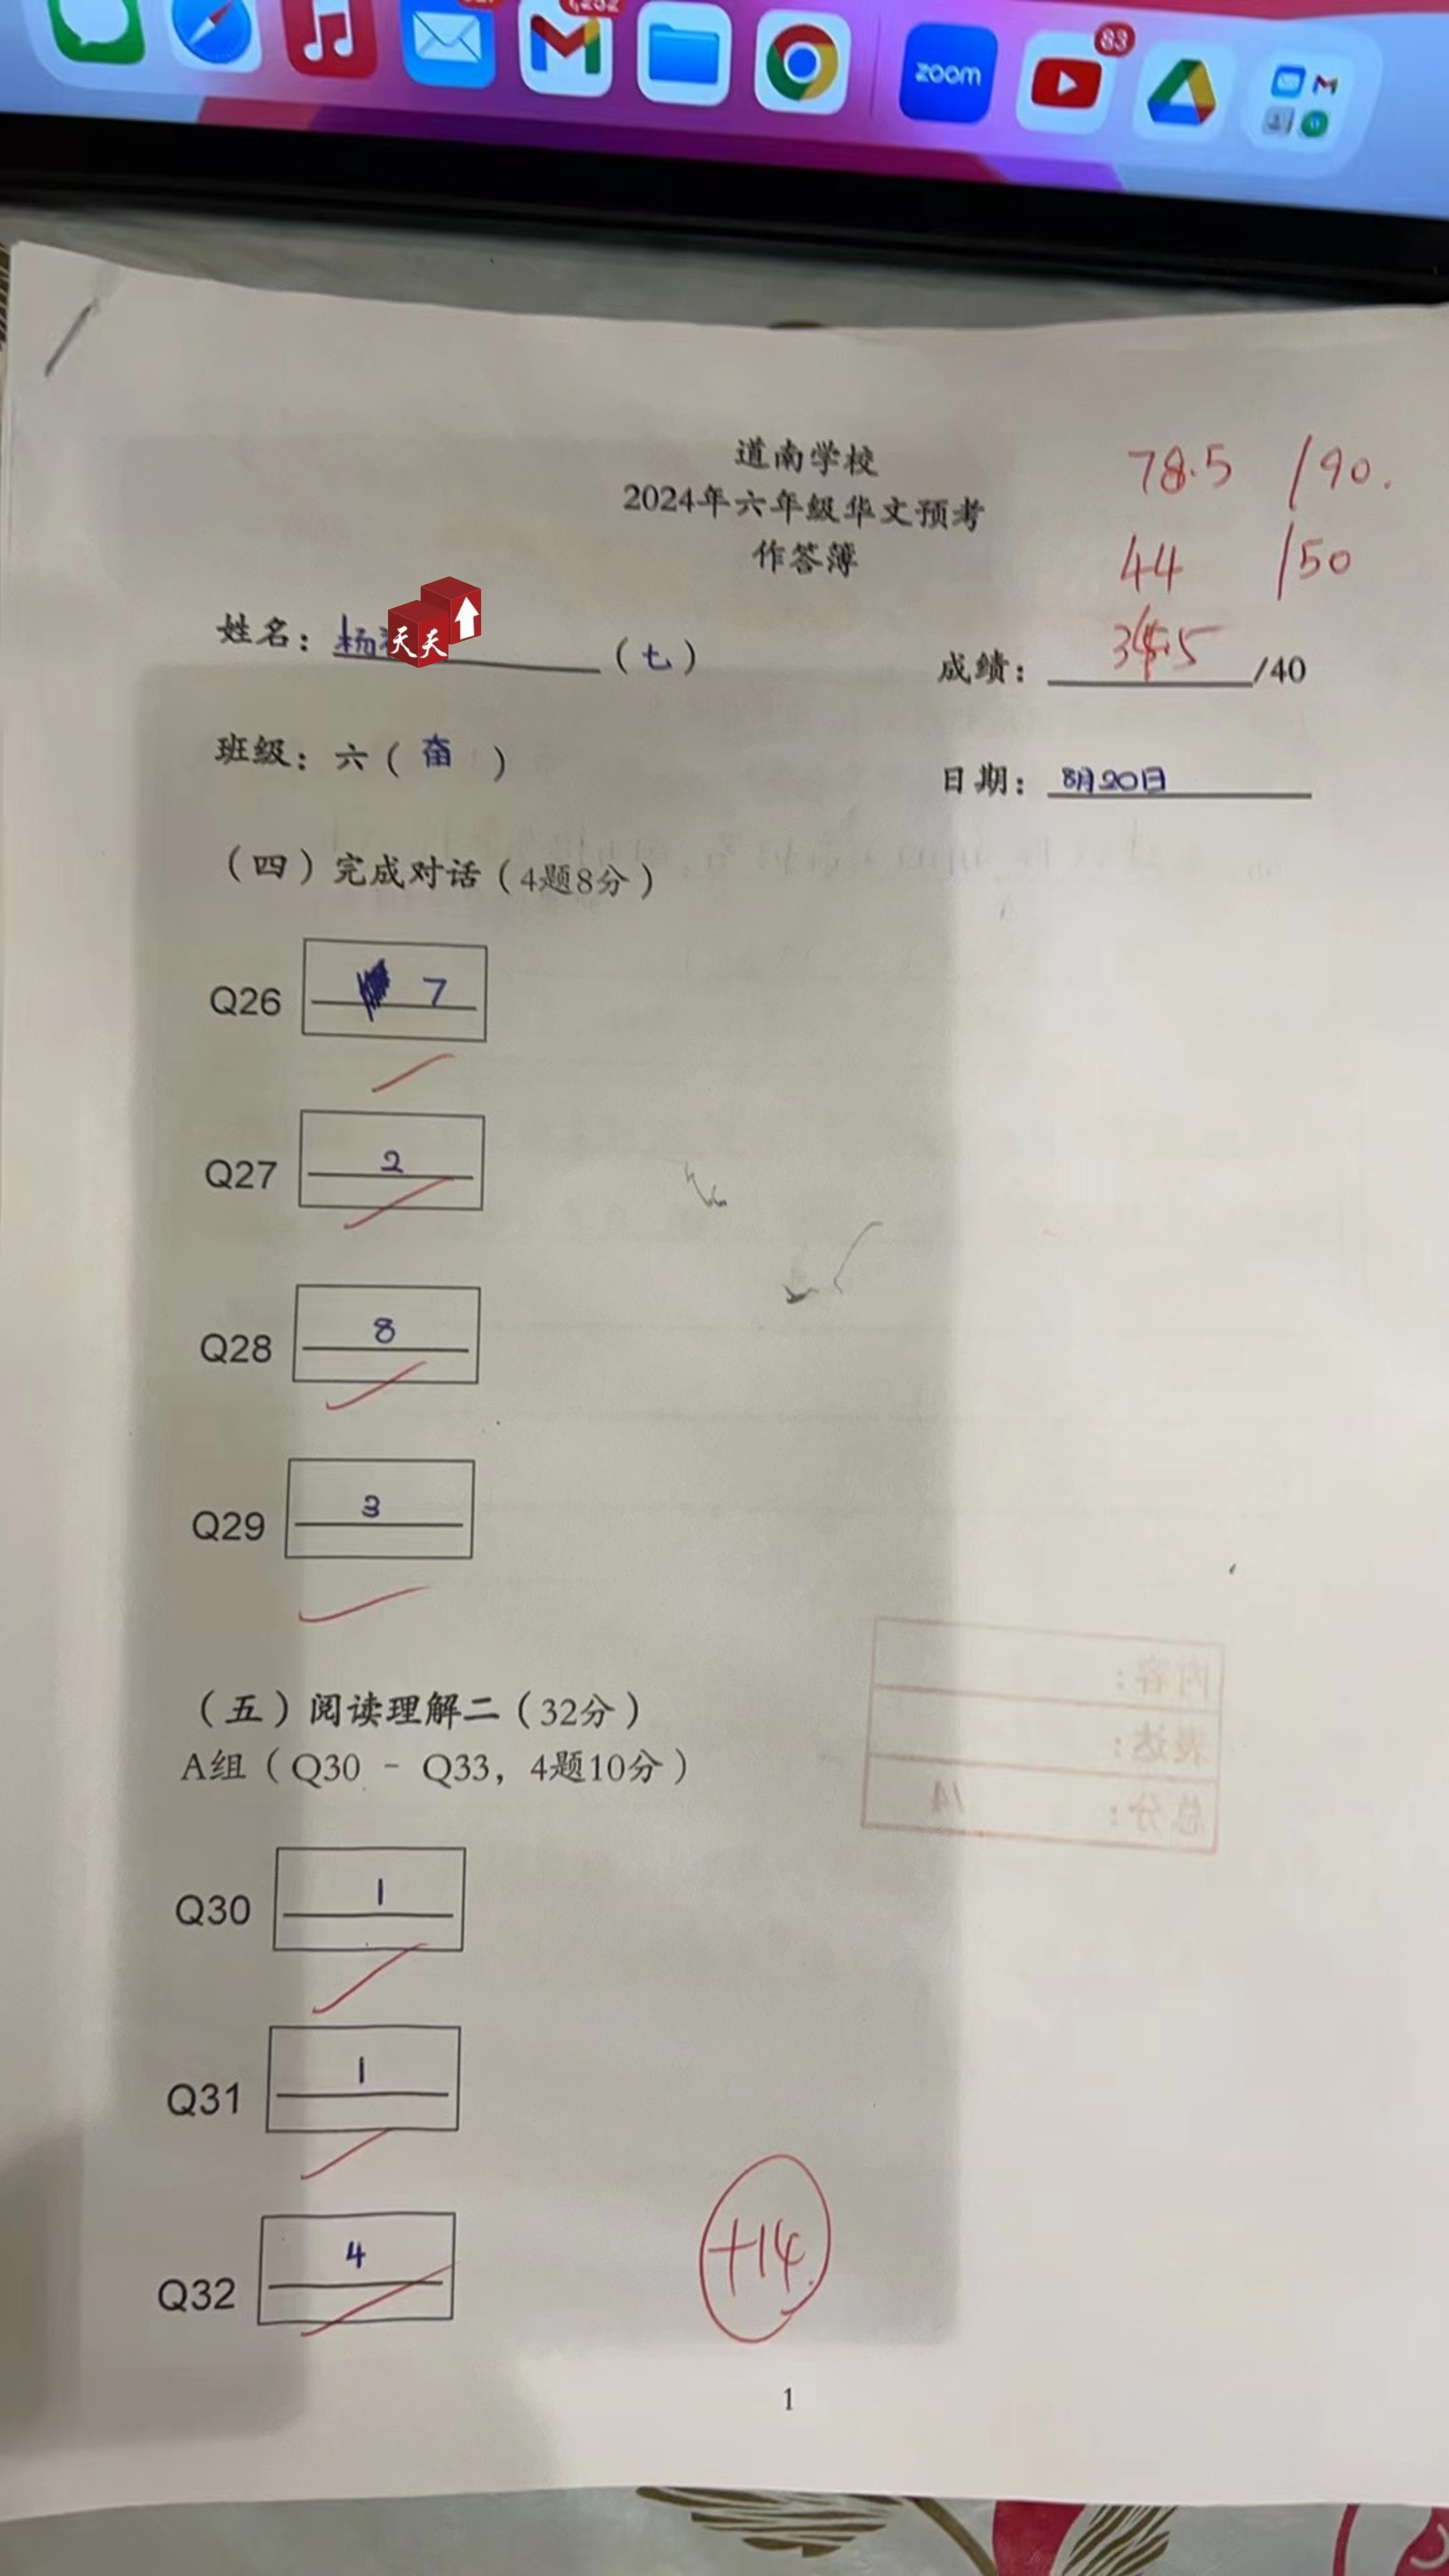 zoom
83
道南学校
2024年六年级华文预考
作答簿
78.5 /90.
44 /50
姓名：杨 天天 （七）
成绩： 34.5 /40
班级：六（奋）
日期：8月20日
（四）完成对话（4题8分）
Q26 7
Q27 2
Q28 8
Q29 3
（五）阅读理解二（32分）
A组（Q30 – Q33，4题10分）
内容：
表达：
总分： 14
Q30 1
Q31 1
Q32 4
+14
1